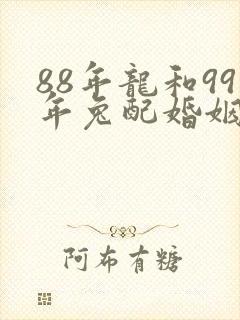 88年龍和99
年兔配婚姻
阿布有糖